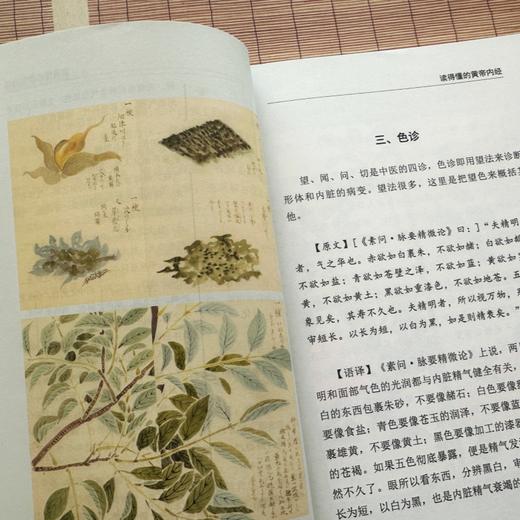 一枚
一枚
读得懂的黄帝内经
三、色诊
望、闻、问、切是中医的四诊，色诊即用望法来诊断
形体和内脏的病变。望法很多，这里是把望色来概括其
他。
【原文】[《素问·脉要精微论》曰：]“夫精明
者，气之华也。赤欲如白裹朱，不欲如赭；白欲如鹅
不欲如盐；青欲如苍璧之泽，不欲如蓝；黄欲如罗
黄，不欲如黄土；黑欲如重漆色，不欲如地苍。五
象见矣，其寿不久也。夫精明者，所以视万物，别
审短长。以长为短，以白为黑，如是则精衰矣。”
【语译】《素问·脉要精微论》上说，两
明和面部气色的光润都与内脏精气健全有关。
白的东西包裹朱砂，不要像赭石；白色要像
要像食盐；青色要像苍玉的润泽，不要像蓝
裹雄黄，不要像黄土；黑色要像加工的漆器
的苍褐。如果五色彻底暴露，便是精气发
然不久了。眼所以看东西，分辨黑白，审
长为短，以白为黑，也是内脏精气衰竭的